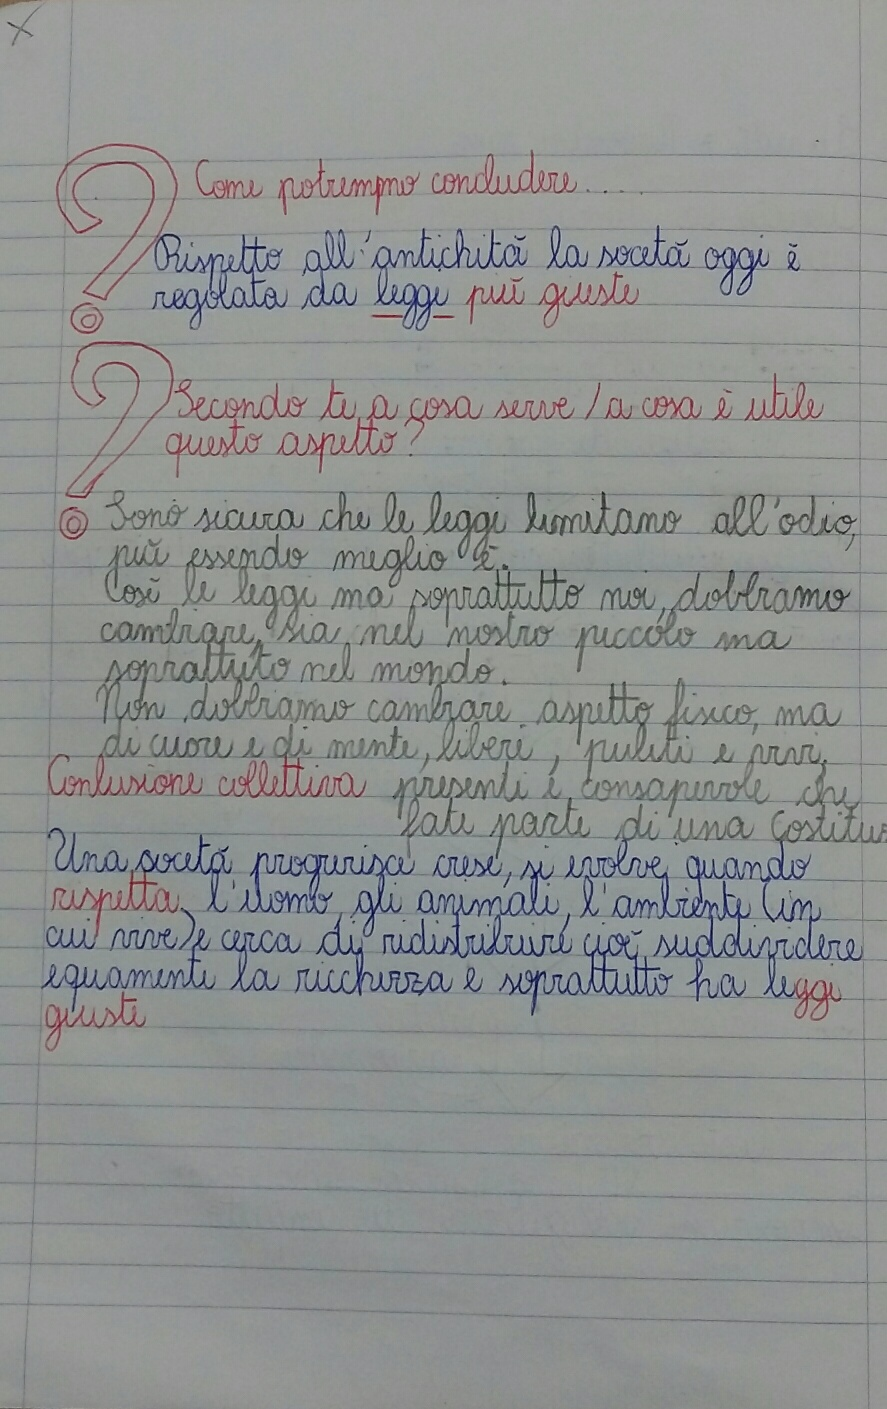 Come potremmo concludere....
Rispetto all'antichità la socetà oggi è
regolata da leggi più giuste
Secondo te a cosa serve / a cosa è utile
questo aspetto?
Sono sicura che le leggi limitano all'odio,
più essendo meglio è.
Così le leggi ma soprattutto noi, dobbiamo
cambiare, sia nel nostro piccolo ma
soprattutto nel mondo.
Non dobbiamo cambiare aspetto fisico, ma
di cuore e di mente, liberi, puliti e vivi,
Conlusione collettiva presenti e consapevole che
fate parte di una Costitu
Una socetà progurisce cresce, si evolve quando
rispetta l'uomo, gli animali, l'ambiente (in
cui vive) e cerca di ridistribuire cioè suddividere
equamente la ricchezza e soprattutto ha leggi
giuste